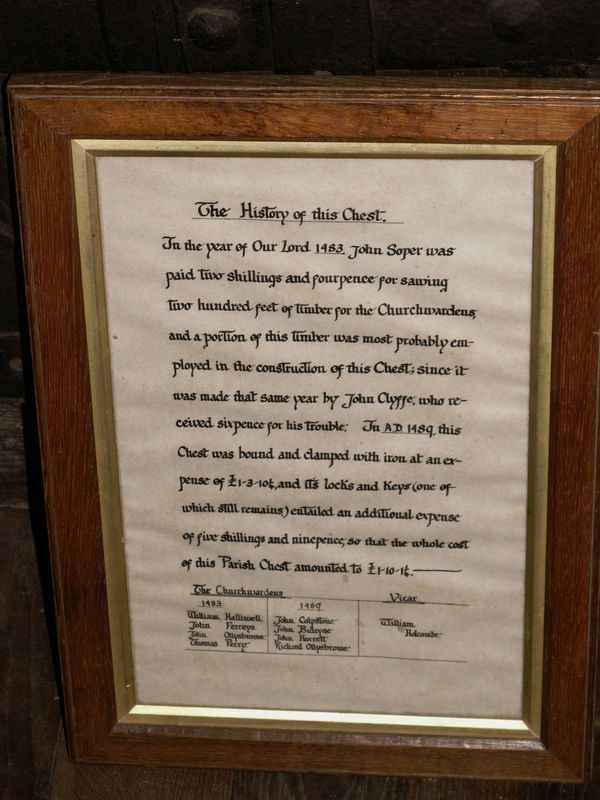 The History of this Chest.
In the year of Our Lord 1483, John Soper was
paid two shillings and fourpence for sawing
two hundred feet of timber for the Churchwardens,
and a portion of this timber was most probably em-
ployed in the construction of this Chest; since it
was made that same year by John Clyffe, who re-
ceived sixpence for his trouble. In A.D 1489, this
Chest was bound and clamped with iron at an ex-
pense of £1-3-10½, and its locks and keys (one of
which still remains,) entailed an additional expense
of five shillings and ninepence, so that the whole cost
of this Parish Chest amounted to £1-10-1½.
The Churchwardens Vicar
1483 1489
William Halliwell John Colpstone William
John Ferreys John Holcombe
John John Harrell
Thomas Perry Richard